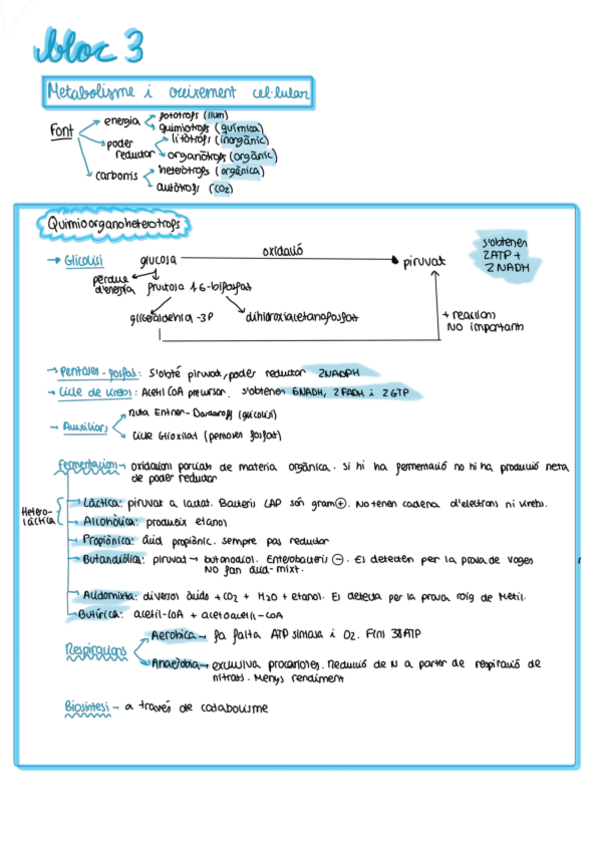 bloc 3
Metabolisme i creixement cel·lular
Font
energia
fototrofs (llum)
quimiotrofs (química)
poder reductor
litòtrofs (inorgànic)
organòtrofs (orgànic)
carbonis
heteròtrofs (orgànica)
autòtrofs (CO2)
Quimioorganoheterotrofs
→ Glicolisi
glucosa
oxidació
piruvat
s'obtenen
2ATP +
2 NADH
perdue
d'energia
fructosa 1,6-bifosfat
gliceraldehid-3P
dihidroxiacetonafosfat
+ reaccions
NO importants
→ Pentoses-fosfat: s'obté piruvat, poder reductor 2NADPH
→ Cicle de Krebs: Acetil CoA precursor. s'obtenen 6NADH, 2 FADH i 2 GTP
→ Auxiliars
Ruta Entner-Doudoroff (glicolisi)
Cicle Glioxilat (pentoses fosfat)
Fermentacions → oxidacions parcials de materia orgànica. Si hi ha fermentació no hi ha producció neta
de poder reductor
Hetero-
làctica
Làctica: piruvat a lactat. Bacteris LAP són gram +. No tenen cadena d'electrons ni Krebs.
Alcohòlica: produeix etanol
Propiònica: àcid propiònic. sempre pas reductor
Butandiòlica: piruvat → butanodiol. Enterobacteris -. Es detecten per la prova de Voges
NO fan àcid-mixt.
Acidomixta: diversos àcids + CO2 + H2O + etanol. Es detecta per la prova roig de Metil.
Butírica: acetil-CoA + acetoacetil-CoA
Respiracions
Aeròbica → fa falta ATP sintasa i O2. Fins 38ATP
Anaeròbia → exclusiva procariotes. Reducció de N a partir de respiració de
nitrats. Menys rendiment
Biosíntesi - a través de catabolisme